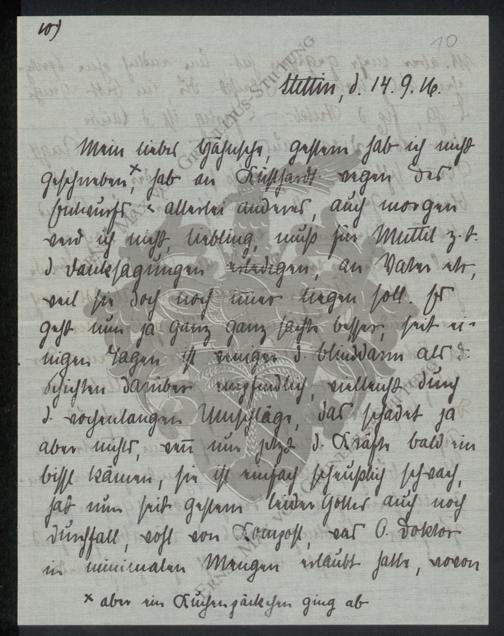 10)
10
Stettin, d. 14.9.16.
Mein liebes Hähnsche, gestern hab ich nicht
geschrieben x, hab an Lichthardt wegen des
Entwurfs & allerlei anderes, auch morgen
werd ich nicht, Liebling, muß für Muttel z.t.
d. Danksagungen erledigen, an Vater etc,
weil sie doch noch immer liegen soll. Es
geht nun ja ganz ganz sachte besser, seit ei-
nigen Tagen ist weniger d. Blinddarm als d.
Schichten darüber empfindlich, vielleicht durch
d. wochenlangen Umschläge, das schadet ja
aber nichts, wenn nun jetzt d. Kräfte bald ein
bissl kämen, sie ist einfach scheußlich schwach,
hat nun seit gestern leider Gottes auch noch
Durchfall, wohl von Kompott, was O. Doktor
in minimalen Mengen erlaubt hatte, wovon
x aber ein Kuchenpäckchen ging ab